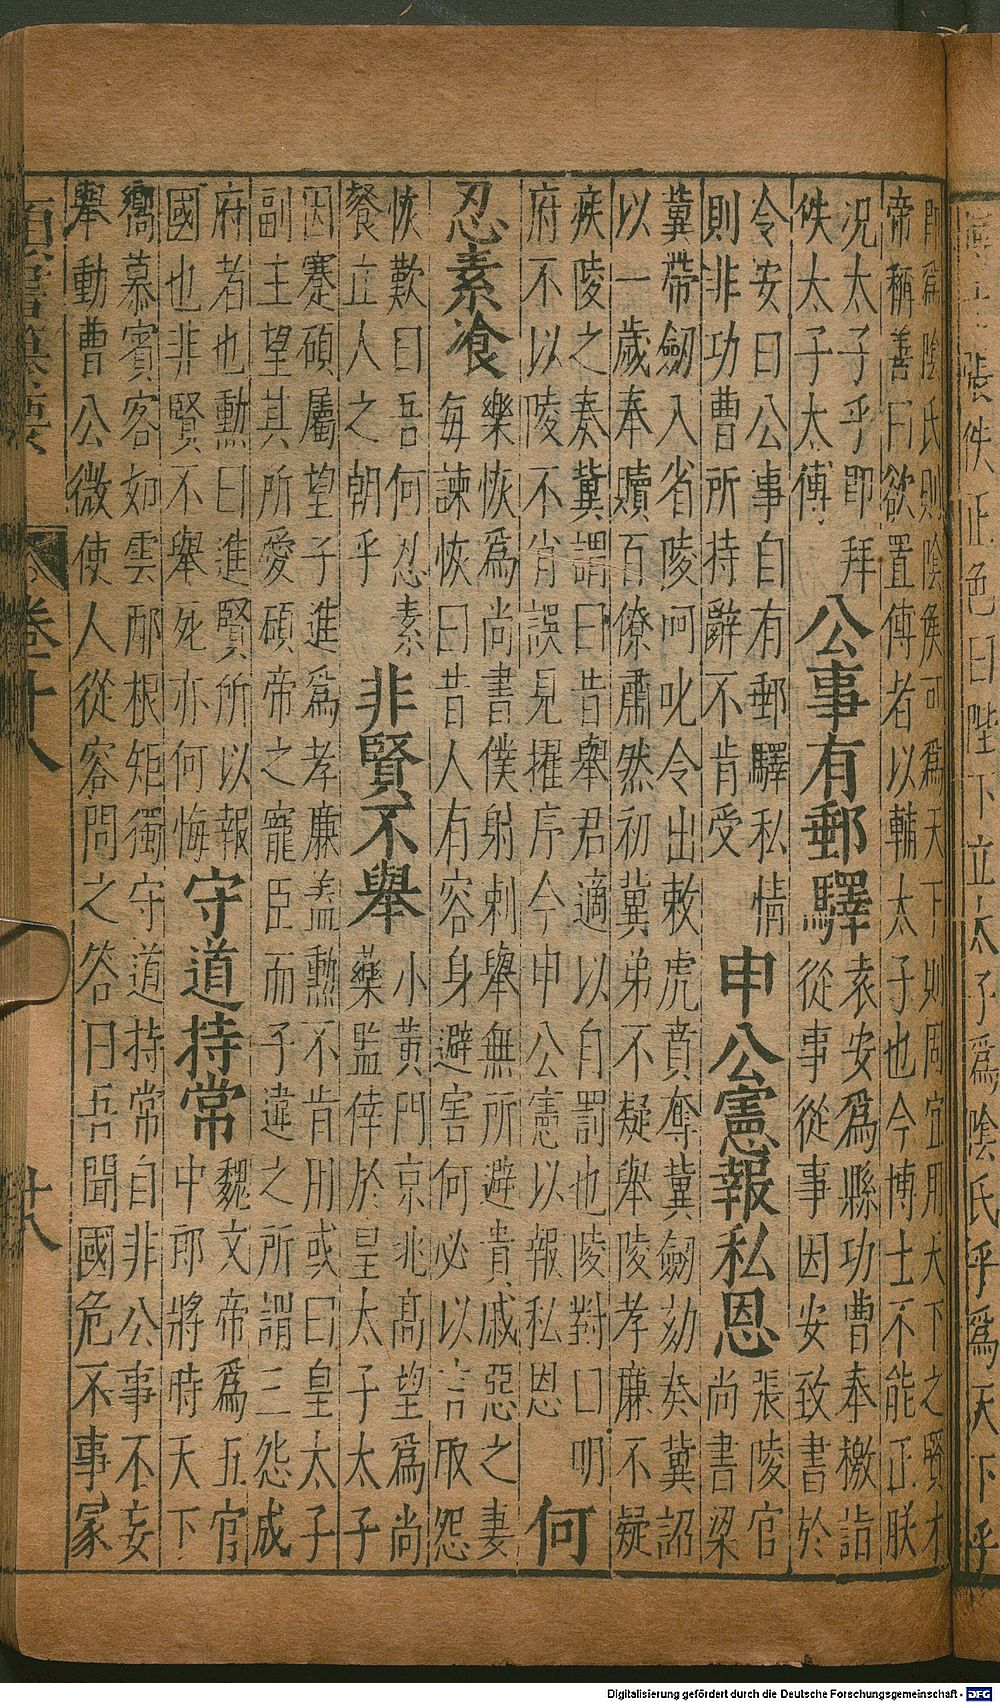 張佚正色曰陛下立太子為陰氏乎為天下乎
即為陰氏則陰侯可為天下則固宜用天下之賢才
帝稱善曰欲置傅者以輔太子也今博士不能正朕
况太子乎即拜
佚太子太傅
公事有郵驛
袁安為縣功曹奉檄詣
從事從事因安致書於
令安曰公事自有郵驛私情
則非功曹所持辭不肯受
申公憲報私恩
張陵官
尚書梁
冀帶劒入省陵呵叱令出敕虎賁奪冀劒劾奏冀詔
以一歲奉贖百僚肅然初冀弟不疑舉陵孝廉不疑
疾陵之奏冀謂曰昔舉君適以自罰也陵對曰明
府不以陵不肖誤見擢序今申公憲以報私恩
何
忍素飡
樂恢為尚書僕射刺舉無所避貴戚惡之妻
每諫恢曰昔人有容身避害何必以言取怨
恢歎曰吾何忍素
餐立人之朝乎
非賢不舉
小黄門京兆髙望為尚
藥監倖於皇太子太子
因蹇碩屬望子進為孝廉盖勳不肯用或曰皇太子
副主望其所愛碩帝之寵臣而子違之所謂三怨成
府者也勳曰進賢所以報
國也非賢不舉死亦何悔
守道持常
魏文帝為五官
中郎將時天下
嚮慕賓客如雲邴根矩獨守道持常自非公事不妄
舉動曹公微使人從容問之答曰吾聞國危不事冢
卷十八
廿八
Digitalisierung gefördert durch die Deutsche Forschungsgemeinschaft - DFG